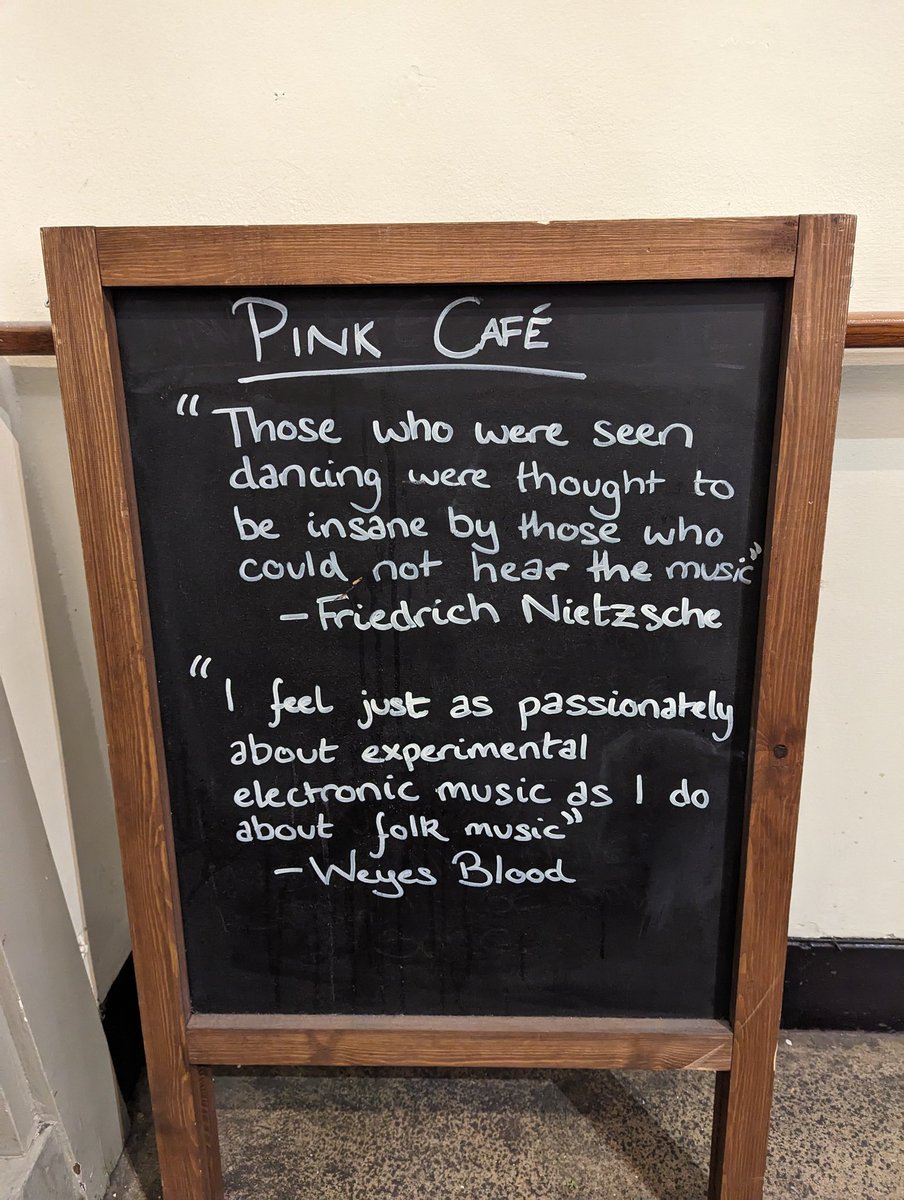 PINK CAFÉ
"Those who were seen
dancing were thought to
be insane by those who
could not hear the music"
– Friedrich Nietzsche
"I feel just as passionately
about experimental
electronic music as I do
about folk music"
– Weyes Blood